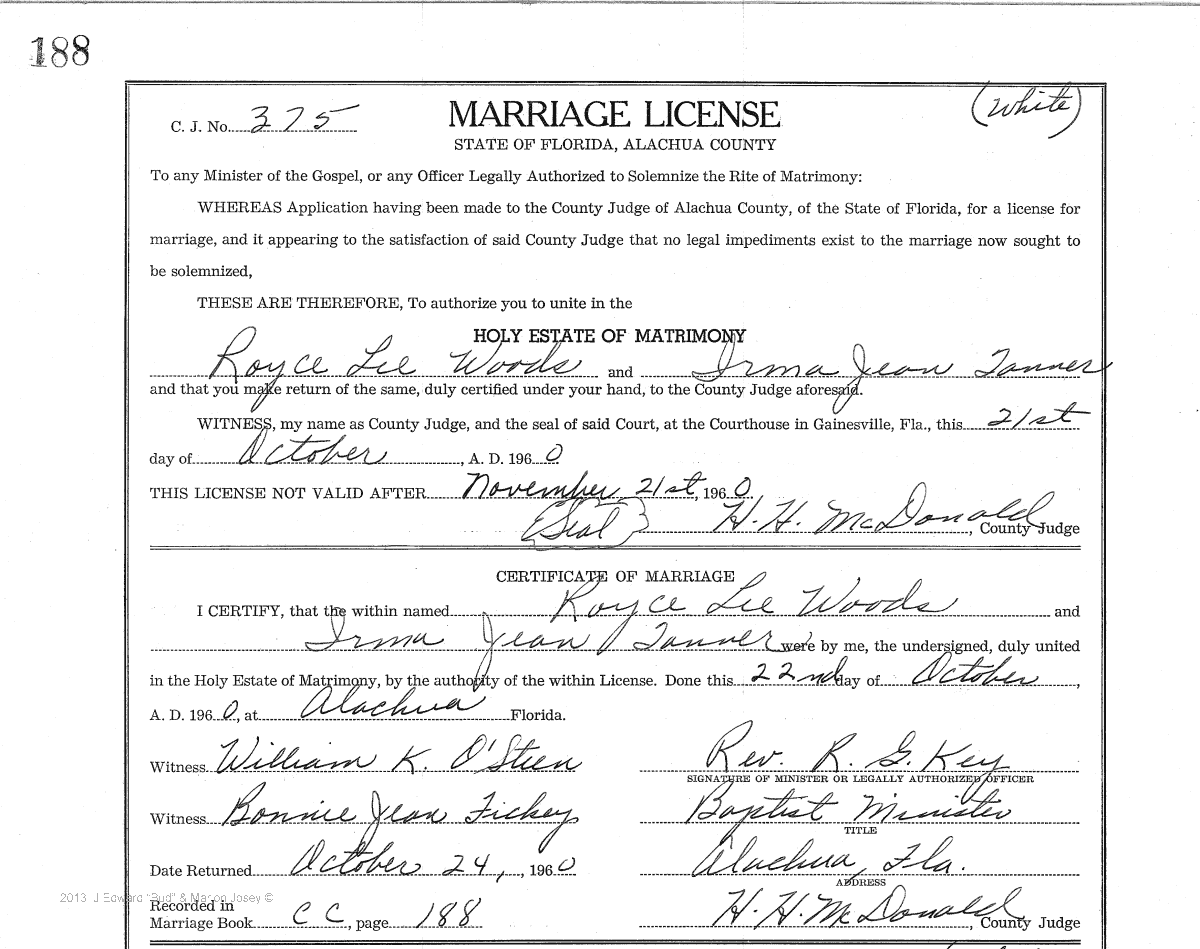 188
C. J. No. 375
MARRIAGE LICENSE
(White)
STATE OF FLORIDA, ALACHUA COUNTY
To any Minister of the Gospel, or any Officer Legally Authorized to Solemnize the Rite of Matrimony:
WHEREAS Application having been made to the County Judge of Alachua County, of the State of Florida, for a license for
marriage, and it appearing to the satisfaction of said County Judge that no legal impediments exist to the marriage now sought to
be solemnized,
THESE ARE THEREFORE, To authorize you to unite in the
HOLY ESTATE OF MATRIMONY
Royce Lee Woods and Irma Jean Tanner
and that you make return of the same, duly certified under your hand, to the County Judge aforesaid.
WITNESS, my name as County Judge, and the seal of said Court, at the Courthouse in Gainesville, Fla., this 21st
day of October, A. D. 1960
THIS LICENSE NOT VALID AFTER November 21st, 1960.
(Seal) H. H. McDonald, County Judge
CERTIFICATE OF MARRIAGE
I CERTIFY, that the within named Royce Lee Woods and
Irma Jean Tanner were by me, the undersigned, duly united
in the Holy Estate of Matrimony, by the authority of the within License. Done this 22nd day of October,
A. D. 1960, at Alachua Florida.
Witness William K. O'Steen
Rev. R. G. Key
SIGNATURE OF MINISTER OR LEGALLY AUTHORIZED OFFICER
Witness Bonnie Jean Fickey
Baptist Minister
TITLE
Date Returned October 24, 1960
Alachua, Fla.
ADDRESS
2013 J Edward "Bud" & Marion Josey ©
Recorded in
Marriage Book CC, page 188
H. H. McDonald, County Judge